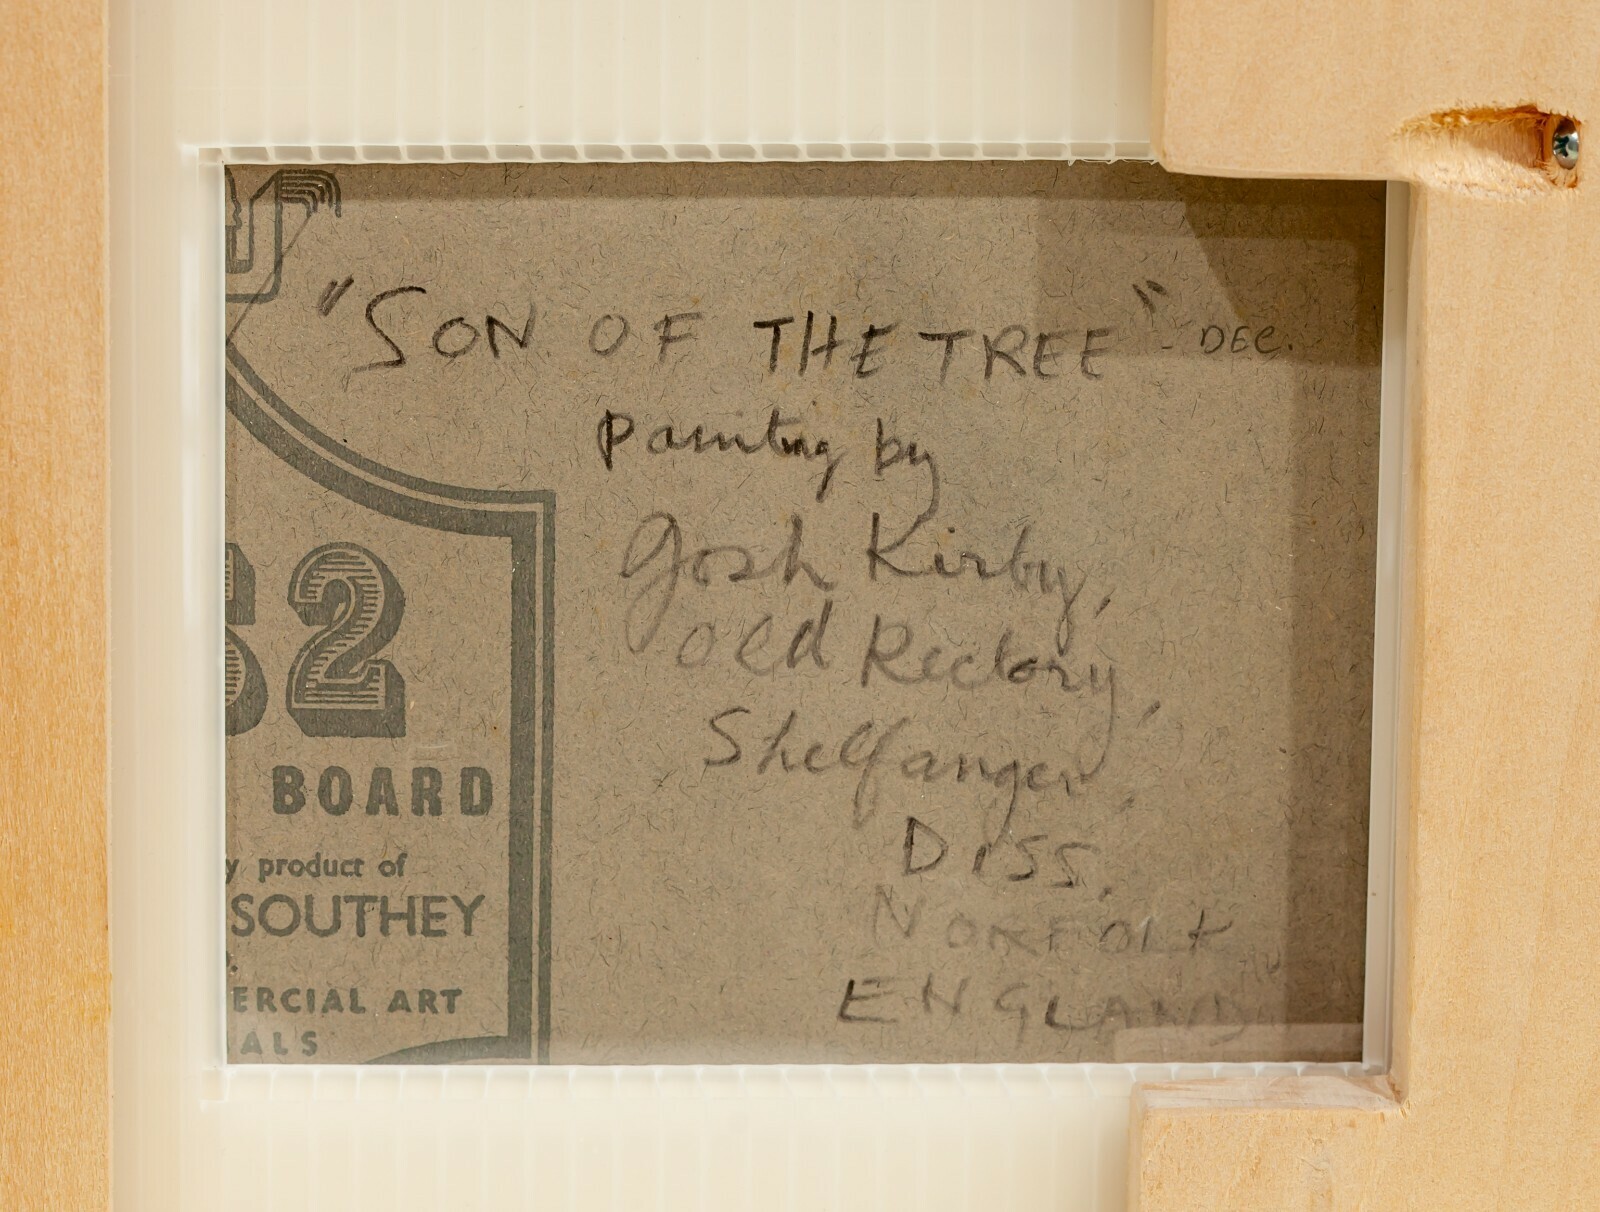 "SON OF THE TREE" - DEC.
Painting by
Josh Kirby,
Old Rectory,
Shelfanger,
DISS.
NORFOLK
ENGLAND
S2
BOARD
y product of
SOUTHEY
ERCIAL ART
ALS